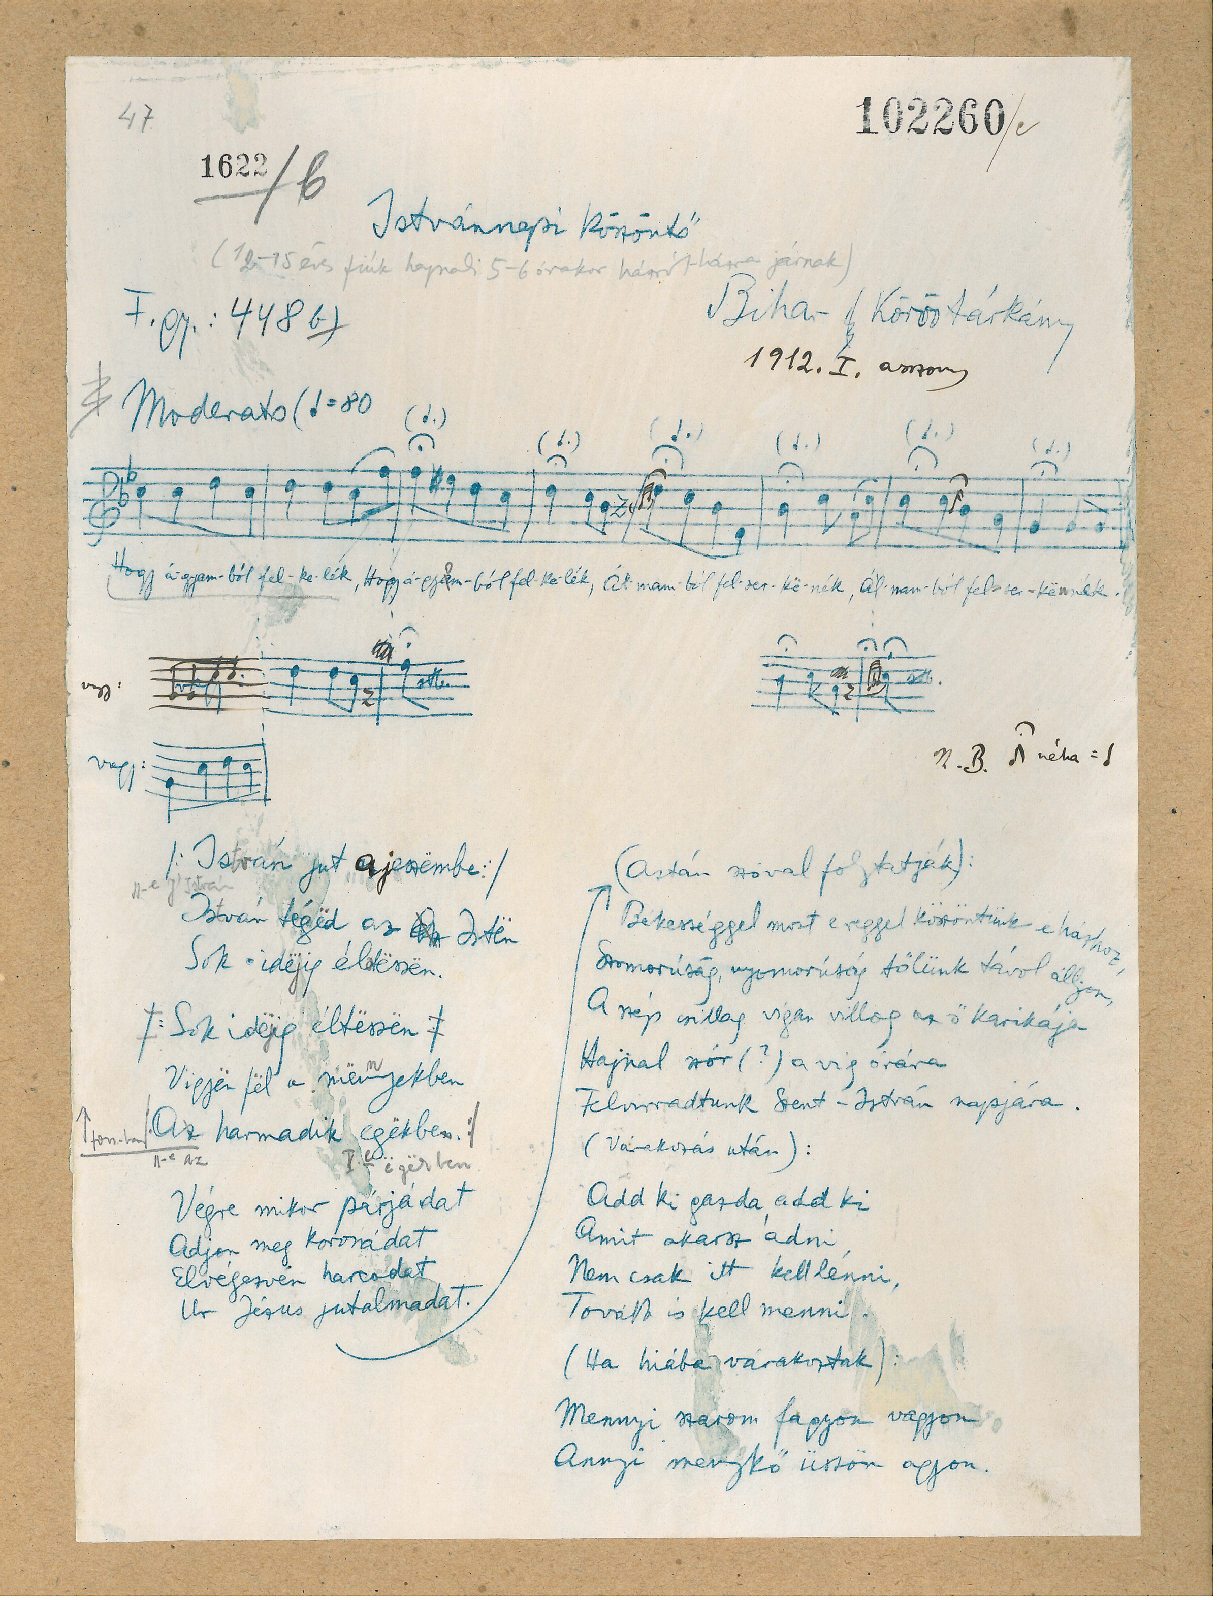 47
102260/c
1622/b
Istvánnapi köszöntő
(12-15 éves fiúk hajnali 5-6 órakor házról-házra járnak)
F. gy.: 448 b)
Bihar Köröstárkány
1912. I. asszony
Moderato (♩=80
Hogy á-gyam-ból fel-ke-lék, Hogy á-gyam-ból fel-ke-lék, Ál-mam-ból fel-ser-kö-nék, Ál-mam-ból fel-ser-kënnék.
vagy: stb. stb.
vagy:
N.B. néha = ♩
/: István jut ajeszëmbe :/
István
István tégëd az Istën
Sok idëjig éltëssën.
Sok idëjig éltëssën
Vigyën fël a mënnyekben
Az harmadik egekben. :/
n-e az
ëgëkben
Végre mikor párjádat
Adjon meg koronádat
Elvégezvén harcodat
Ur Jézus jutalmadat.
(Aztán szóval folytatják):
Bekességgel most e reggel köszöntünk e házhoz,
Szomorúság, nyomorúság tőlünk távol álljon,
A szép csillag vigan villog az ő karikája
Hajnal szór (?) a vig órára
Felvirradtunk Szent-István napjára.
(Várakozás után):
Add ki gazda, add ki
Amit akarsz adni
Nem csak itt kell lënni,
Tovább is kell menni.
(Ha hiába várakoztak):
Mennyi szarom fagyon vagyon
Annyi menykő üssön agyon.